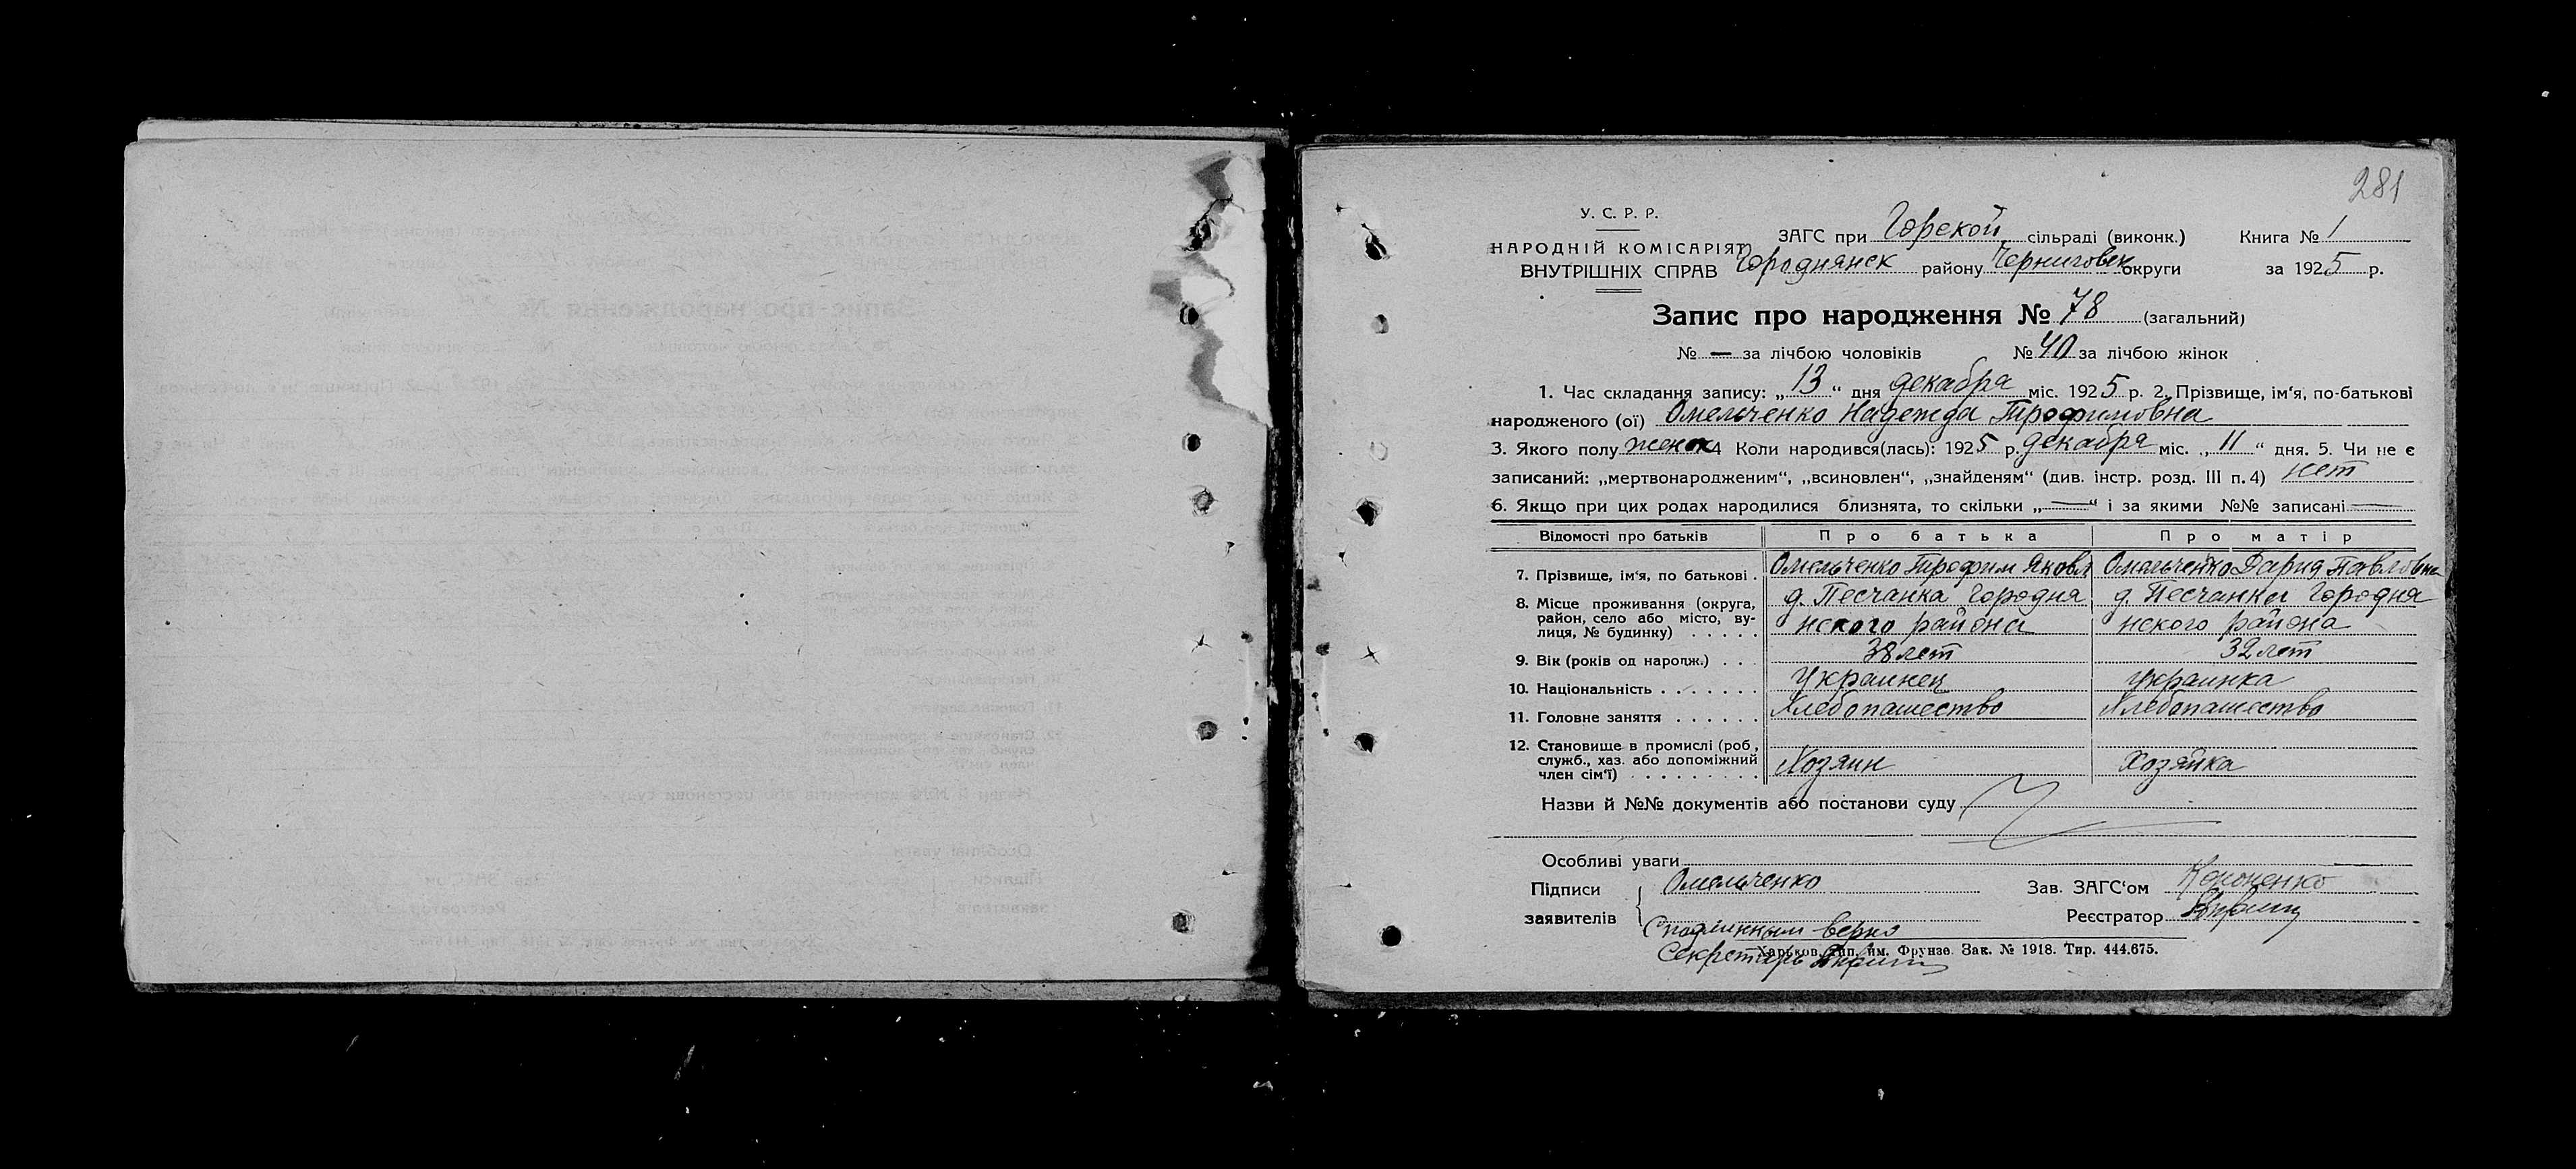 281
У. С. Р. Р.
НАРОДНІЙ КОМІСАРІЯТ
ВНУТРІШНІХ СПРАВ
ЗАГС при Горской сільраді (виконк.) Книга № 1
Городнянск району Черниговск округи за 1925 р.
Запис про народження № 78 (загальний)
№ — за лічбою чоловіків № 40 за лічбою жінок
1. Час складання запису: „13“ дня декабря міс. 1925 р. 2. Прізвище, ім‘я, по-батькові
народженого (ої) Омельченко Надежда Трофимовна
3. Якого полу женск 4 Коли народився(лась): 1925 р. декабря міс. „11“ дня. 5. Чи не є
записаний: „мертвонародженим“, „всиновлен“, „знайденям“ (див. інстр. розд. III п. 4) нет
6. Якщо при цих родах народилися близнята, то скільки „—“ і за якими №№ записані —
Відомості про батьків Про батька Про матір
7. Прізвище, ім‘я, по батькові . Омельченко Трофим Яковл Омельченко Дария Павловна
8. Місце проживання (округа, район, село або місто, ву- лиця, № будинку) . . . . . д. Песчанка Городня нского района д. Песчанка Городня нского района
9. Вік (років од народж.) . . . 38 лет 32 лет
10. Національність . . . . . . . Украинец украинка
11. Головне заняття . . . . . . Хлебопашество Хлебопашество
12. Становище в промислі (роб., служб., хаз. або допоміжний член сім‘ї) . . . . . . . . . Хозяин Хозяйка
Назви й №№ документів або постанови суду
Особливі уваги
Підписи заявителів Омельченко Зав. ЗАГС‘ом
Реєстратор
С подлинным верно
Секретарь
Харьков, тип. им. Фрунзе. Зак. № 1918. Тир. 444.675.